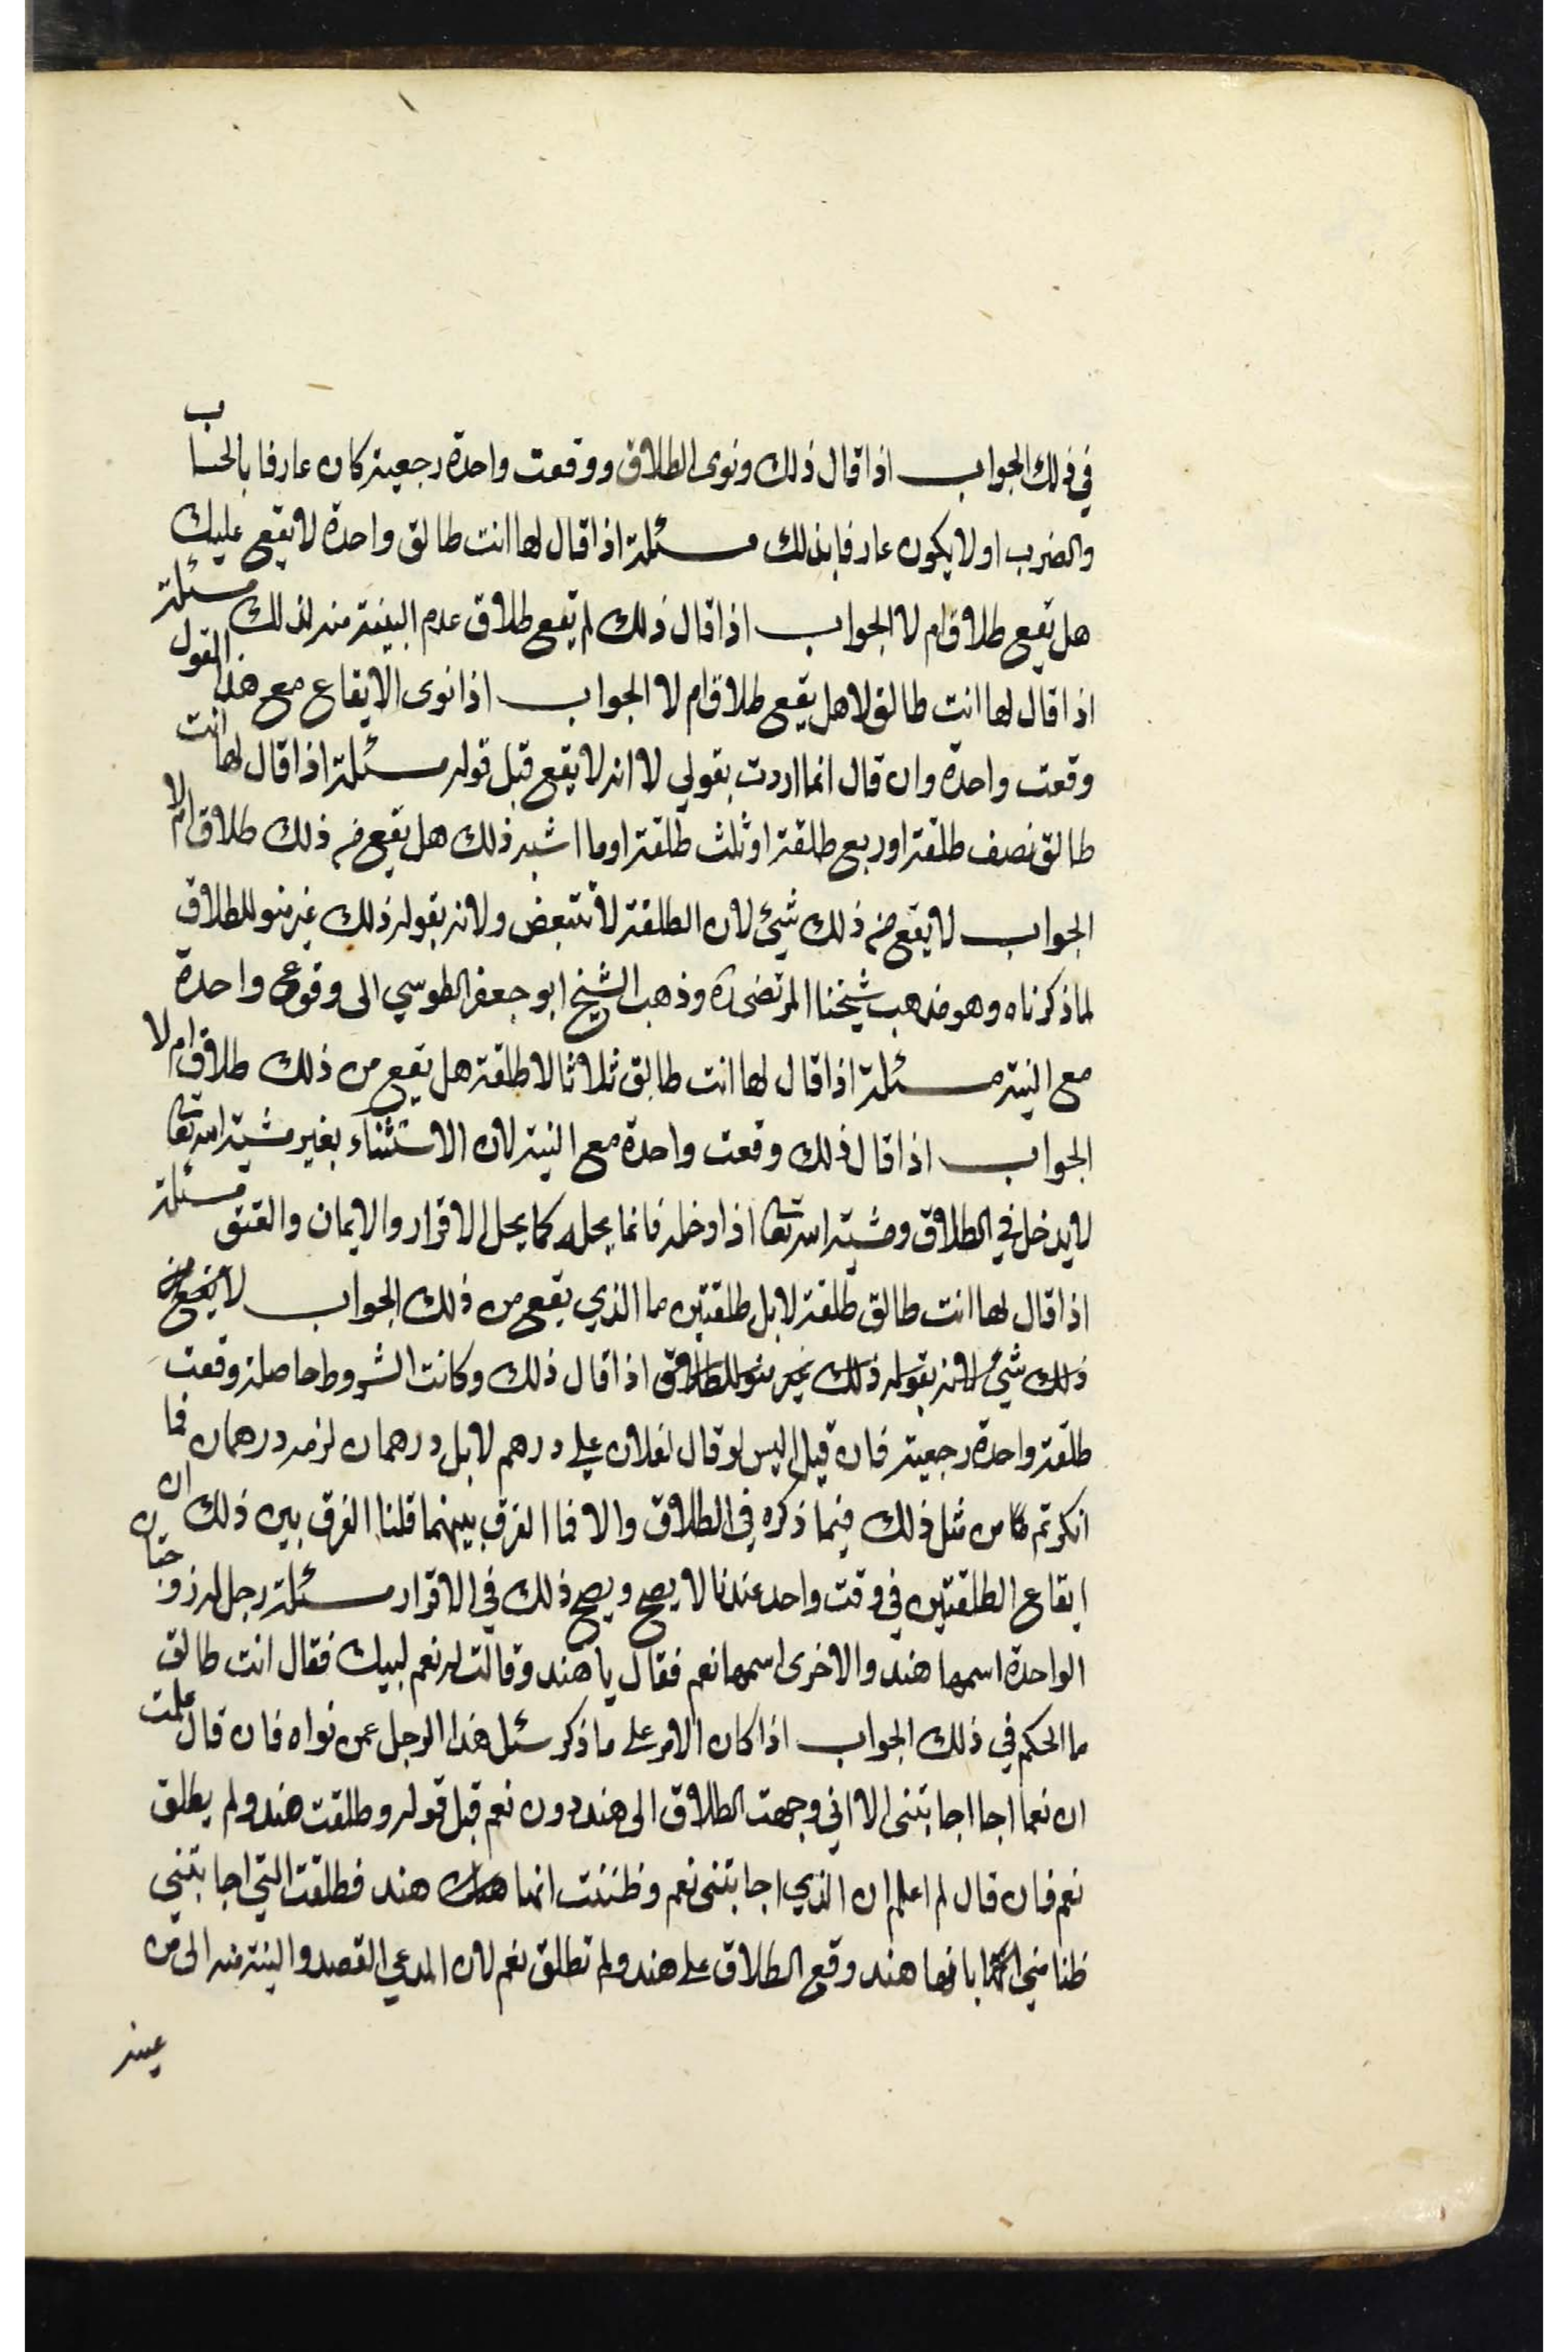 في ذلك الجواب اذا قال ذلك ونوى الطلاق ووقعت واحدة رجعية كان عارفا بالحساب
والضرب او لا يكون عارفا بذلك مسئلة اذا قال لها انت طالق واحدة لا يقع عليك
هل يقع طلاق ام لا الجواب اذا قال ذلك لم يقع طلاق عدم البينة منه لذلك مسئلة
اذا قال لها انت طالق لا هل يقع طلاق ام لا الجواب اذا نوى الايقاع مع هذا القول
وقعت واحدة وان قال انما اردت بقولي لا انه لا يقع قبل قوله مسئلة اذا قال لها انت
طالق نصف طلقة او ربع طلقة او ثلث طلقة او ما اشبه ذلك هل يقع من ذلك طلاق ام لا
الجواب لا يقع من ذلك شيئ لان الطلقة لا تتبعض ولانه بقوله ذلك غير منو للطلاق
لما ذكرناه وهو مذهب شيخنا المرتضى ره وذهب الشيخ ابو جعفر الطوسي الى وقوع واحدة
مع النية مسئلة اذا قال لها انت طالق ثلاثا الا طلقة هل يقع من ذلك طلاق ام لا
الجواب اذا قال ذلك وقعت واحدة مع النية لان الاستثناء بغير مشية الله تعا
لا يدخل في الطلاق ومشية الله تعا اذا دخله فانما يحله كما يحل الاقرار والايمان والعتق مسئلة
اذا قال لها انت طالق طلقة لا بل طلقتين ما الذي يقع من ذلك الجواب لا يقع من
ذلك شئ لانه بقوله ذلك غير منو للطلاق اذا قال ذلك وكانت الشروط حاصلة وقعت
طلقة واحدة رجعية فان قيل اليس لو قال لفلان علي درهم لا بل درهمان لزمه درهمان فما
انكرتم من مثل ذلك فيما ذكره في الطلاق والا فما الفرق بينهما قلنا الفرق بين ذلك ان
ايقاع الطلقتين في وقت واحد عندنا لا يصح ويصح ذلك في الاقرار مسئلة رجل له زوجتان
الواحدة اسمها هند والاخرى اسمها نعم فقال يا هند وقالت له نعم لبيك فقال انت طالق
ما الحكم في ذلك الجواب اذا كان الامر على ما ذكر سئل هذا الرجل عمن نواه فان قال علمت
ان نعما اجا اجابتنى الا اني وجهت الطلاق الى هند دون نعم قبل قوله وطلقت هند ولم يطلق
نعم فان قال لم اعلم ان الذي اجابتنى نعم وظننت انها هند فطلقت التي اجابتني
ظنا مني بانها هند وقع الطلاق على هند ولم تطلق نعم لان المدعي القصد والنية منه الى من
عينه